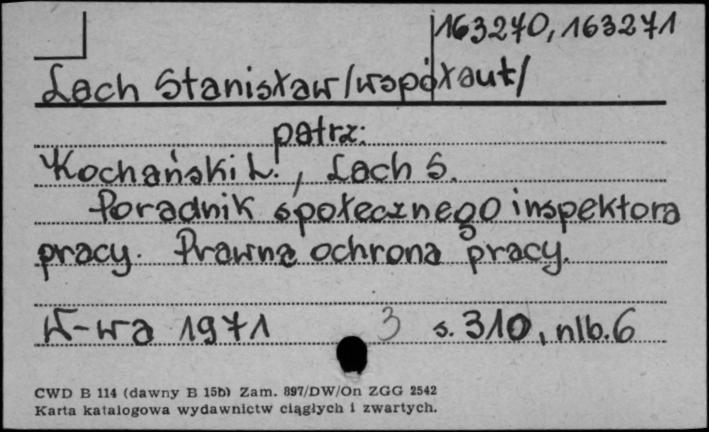 163270, 163271
Lach Stanisław /współaut/
patrz:
Kochański L., Lach S.
Poradnik społecznego inspektora
pracy. Prawna ochrona pracy.
W-wa 1971 3 s. 310, nlb. 6
CWD B 114 (dawny B 15b) Zam. 897/DW/On ZGG 2542
Karta katalogowa wydawnictw ciągłych i zwartych.